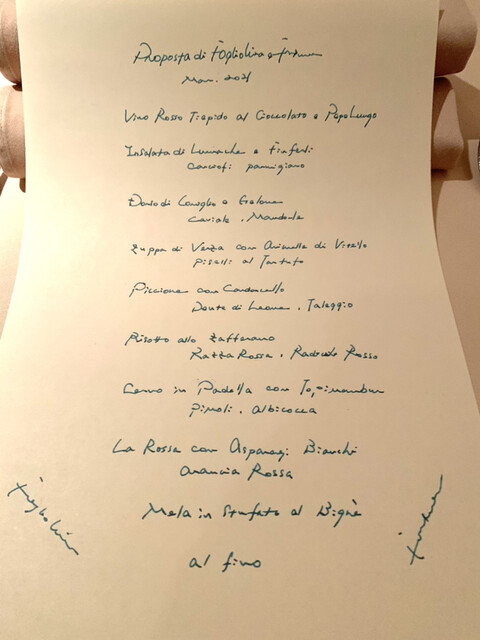 Proposta di Fogliolina e
Mar. 2021
Vino Rosso Tiepido al Cioccolato e Pepe Lungo
Insalata di Lumache e Finferli
Carciofi parmigiano
Dorso di Coniglio e
Caviale, Mandorle
Zuppa di Verza con Animella di Vitello
Piselli al Tartufo
Piccione con Cardoncello
Dente di Leone, Taleggio
Risotto allo Zafferano
Razza Rossa, Radicchio Rosso
Cervo in Padella con Topinambur
Pinoli, Albicocca
La Rossa con Asparagi Bianchi
Arancia Rossa
Mela in Strufato al Bignè
al fino